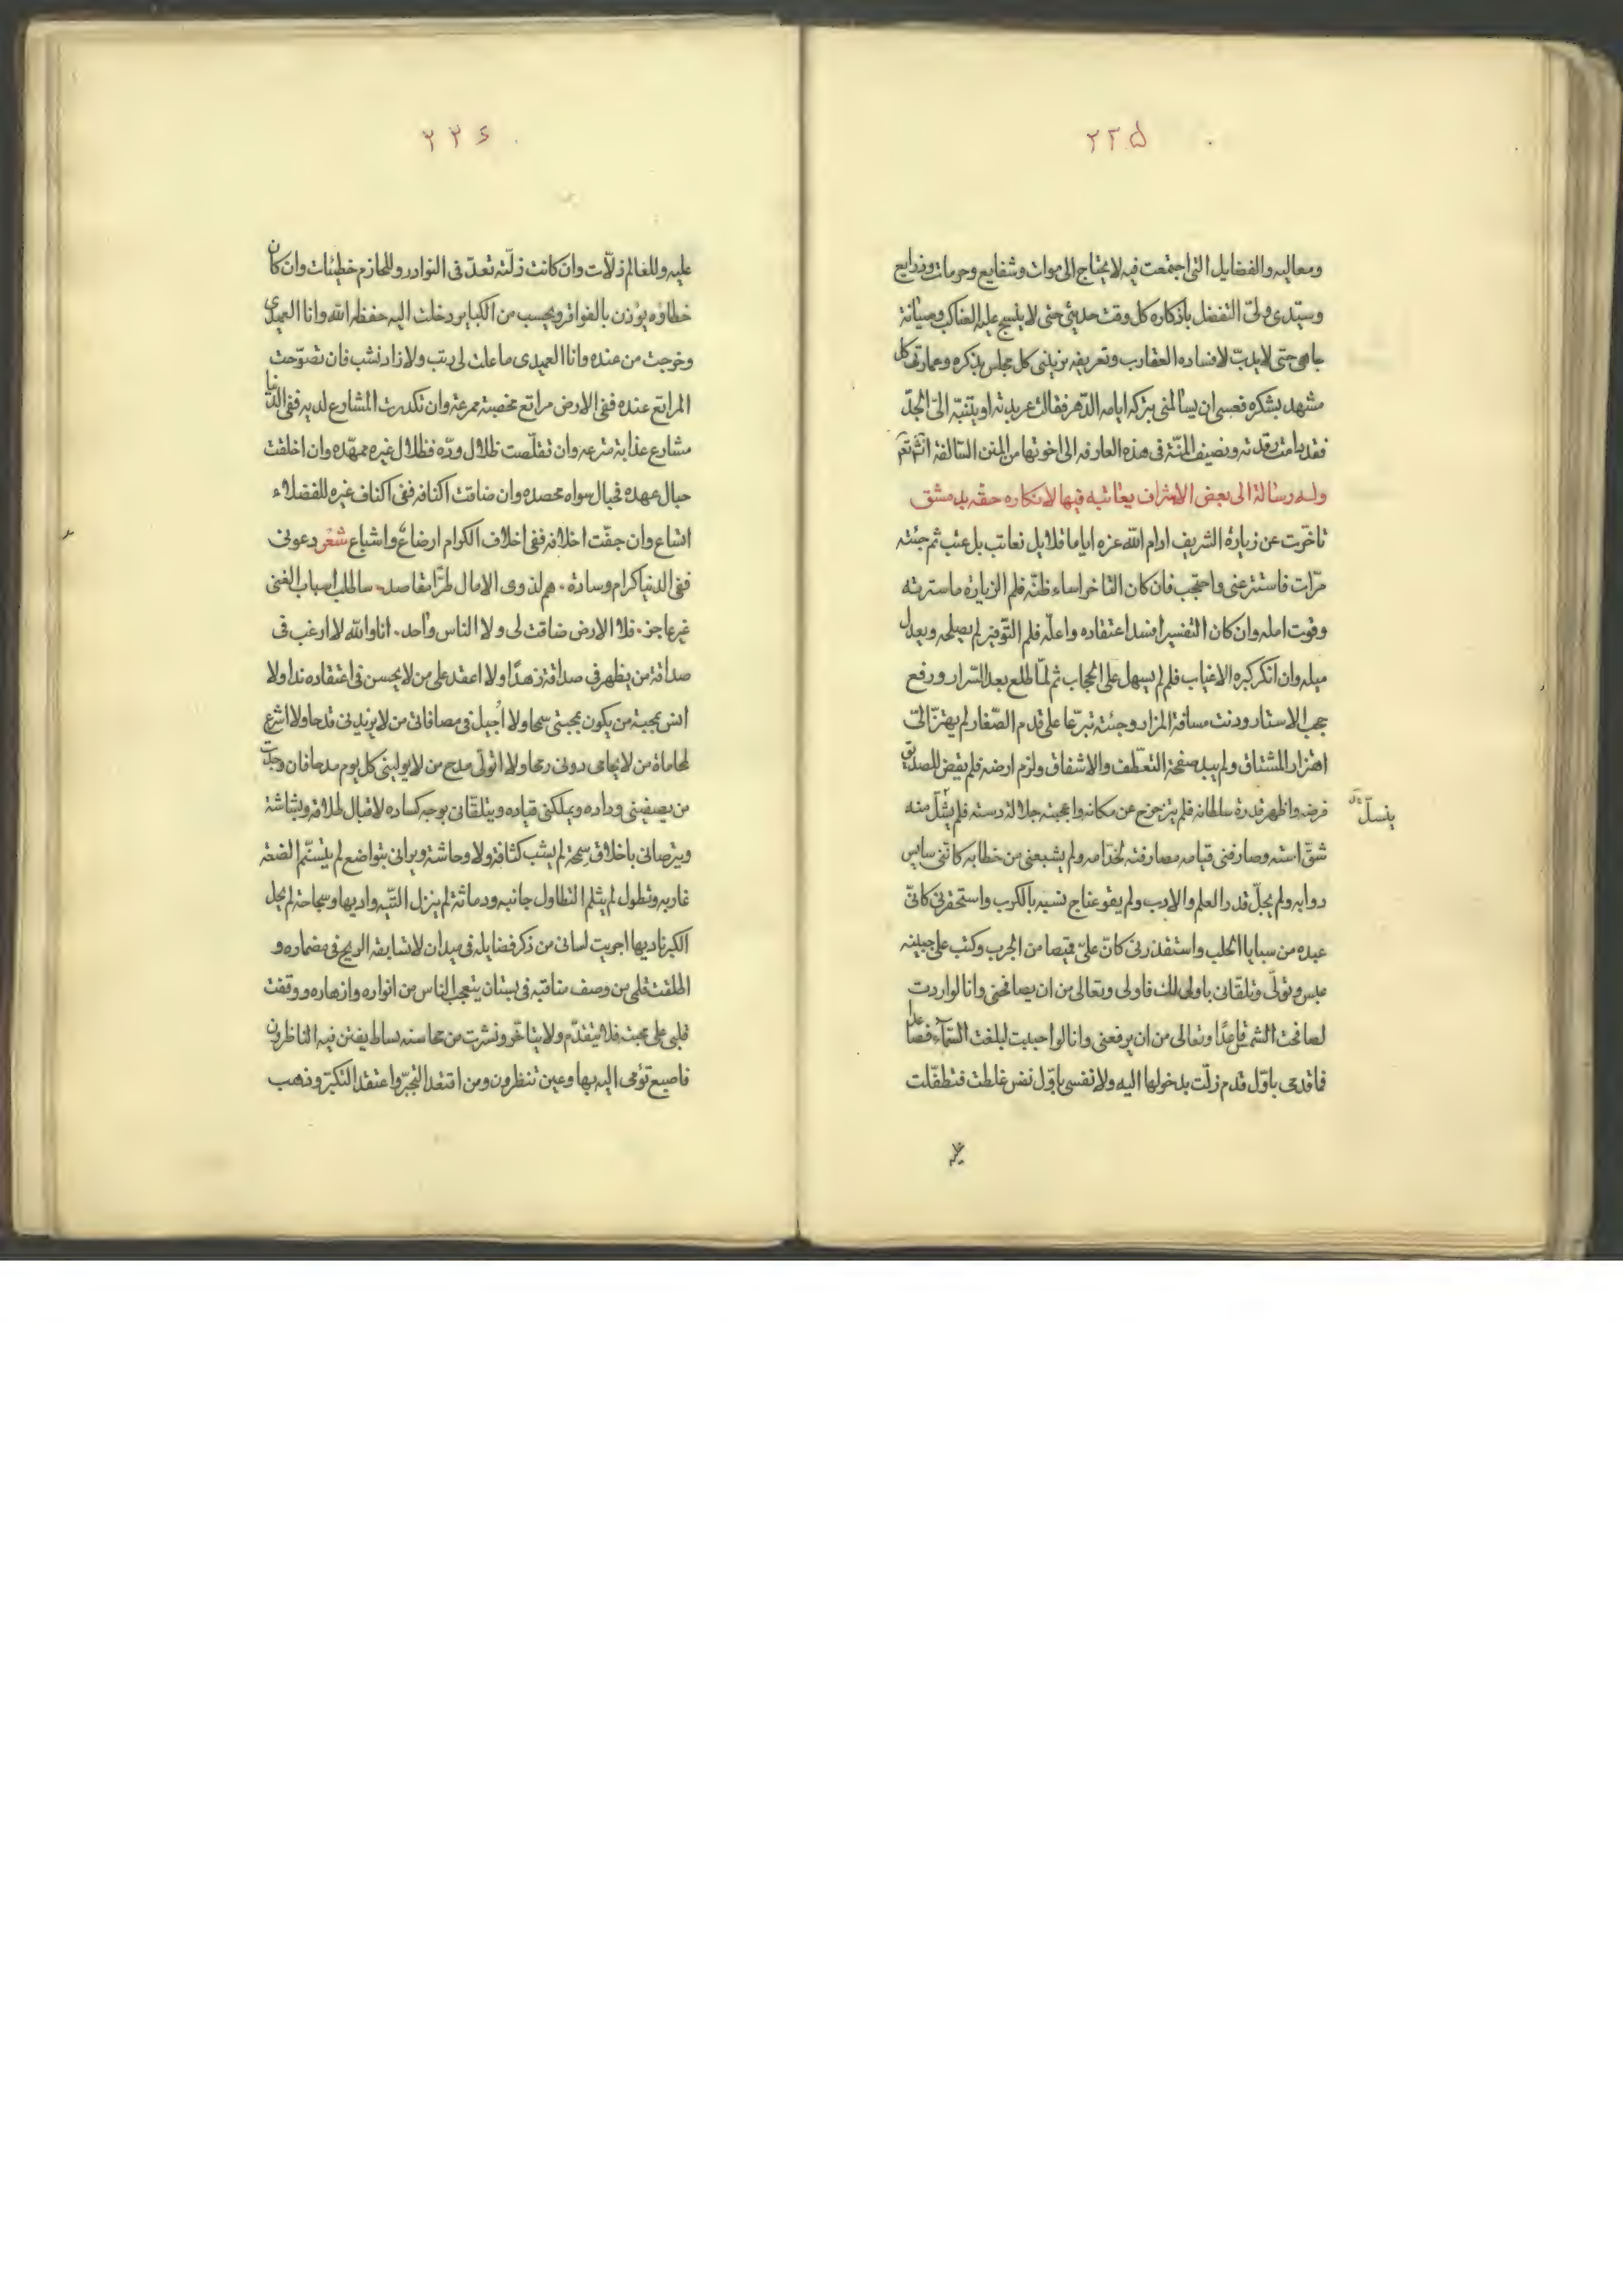 ٢٢۵
ومعاليه والفضايل التى اجتمعت فيه لا يحتاج الى موات وشفايع وحرمات وذرايع
وسيّدى ولىّ التفضل باذكاره كل وقت حديثى حتى لا ينسج عليه العناكب وصيانة
جاهى حتى لا يدبّ لافساده العقارب وتعريفه بزينى كل مجلس بذكره وعمارتى كل
مشهد بشكره فعسى ان يسالمنى ببركة ايامه الدّهر فقالت عربدته او يتنبّه الىّ الجدّ
فقد دامت رقدته ويضيف المنّة فى هذه العارفه الى اخوتها من المنن السّالفة انشٓ تعٓ
وله رسالة الى بعض الاشراف يعاتبه فيها لانكاره حقه بدمشق
تاخّرت عن زيارة الشريف ادام اللّه عزه اياما قلايل نعاتب بل عتب ثم جئته
مرّات فاستتر عنى واحتجب فان كان التاخر اساء ظنّه فلم الزيارة ماسترته
وقوت امله وان كان التفسير افسد اعتقاده واعلّه فلم التّوفير لم يصلحه وبعدل
ميله وان انكر كبره الاغباب فلم لم يسهل علىّ الحجاب ثم لمّا طلع بعد السّرار ورفع
حجب الاستار ودنت مسافة المزار وجئته تبرّعا على قدم الصّغار لم يهتزّ الىّ
اهتزار المشتاق ولم يبد صفحة التعطّف والاشفاق ولزم ارضه فلم يقض للصديق
فرضه واظهر قدرة سلطانه فلم يتزحزح عن مكانه واعجبته جلالة دسته فلم ينسلّ منه
ينسلّ
شقّ استه وصارفنى قيامه مصارفته لخدّامه ولم يشبعنى من خطابه كانّنى سايس
دوابه ولم يجلّ قدر العلم والادب ولم يقو عناج نسبه بالكرب واستحقرنى كانّى
عبده من سبايا الحلب واستقذرنى كانّ علىّ قيصا من الجرب وكتب على جبينه
عبس وتولّى وتلقانى باولى لك فاولى وتعالى من ان يصافحنى وانا لو اردت
لصافحت الشمس قاعدًا وتعالى من ان يرفعنى وانا لو احببت لبلغت السّمآء فصاعدا
فما قدمى باوّل قدم زلّت بدخولها اليه ولا نفسى باوّل نفس غلطت فتطفّلت
٢٢۶
عليه وللعالم زلّات وان كانت زلّته تعدّ فى النوادر وللحازم خطيئات وان كان
خطاؤه يؤذن بالفواقر ويحسب من الكباير دخلت اليه حفظه اللّه وانا العميدى
وخرجت من عنده وانا العميدى ما علت لى رتب ولا زاد نشب فان تصوّحت
المراتع عنده ففى الارض مراتع مخصبة ممرعة وان تكدرت المشارع لديه ففى الدنيا
مشارع عذابة مترعه وان تقلّصت ظلال ودّه فظلال غيره ممهّده وان اخلقت
حبال عهده فحبال سواه محصده وان ضاقت اكنافه ففى اكناف غيره للفضلاء
اتساع وان جفّت اخلافه ففى اخلاف الكرام ارضاع واشباع شعر دعونى
ففى الدنيا كرام وسادة . هم لذوى الامال طرًّا مقاصد . ساطلب اسباب الغنى
غير عاجز . فلا الارض ضاقت لى ولا الناس واحد . انا واللّه لا ارغب فى
صداقة من يظهر فى صداقة زهدًا ولا اعتقد على من لا يحسن فى اعتقاده ندا ولا
انس بمحبة من يكون بمحبتى سمحا ولا أجيل فى مصافاتى من لا يزيدنى قدحا ولا اشرع
لمحاماة من لا يحامى دونى رمحا ولا اتولّى مدح من لا يولينى كل يوم مدحا فان وجدت
من يصفينى وداده ويملكنى قياده ويتلقّانى بوجه كساده لاقبال طلاقة وبشاشة
ويترصانى باخلاق سمحة لم يشب كثافة ولا وحاشة ويرانى بتواضع لم يتسنّم الضعة
غاربه وتطول لم يثلم التطاول جانبه ودماثة لم ينزل التّيه واديها وسجاحة لم يحل
الكبر ناديها اجريت لسانى من ذكر فضايله فى ميدان لا تسابقه الريح فى مضماره و
اطلقت قلمى من وصف مناقبه فى بستان يتعجب الناس من انواره وازهاره ووقفت
قلبى على محبته فلا يتقدّم ولا يتاخّر ونشرت من محاسنه بساط يفتن فيه الناظرون
فاصبع تؤمى اليه بها وعين تنظرون ومن اقتعد التجبّر واعتقد التكبّر وذهب